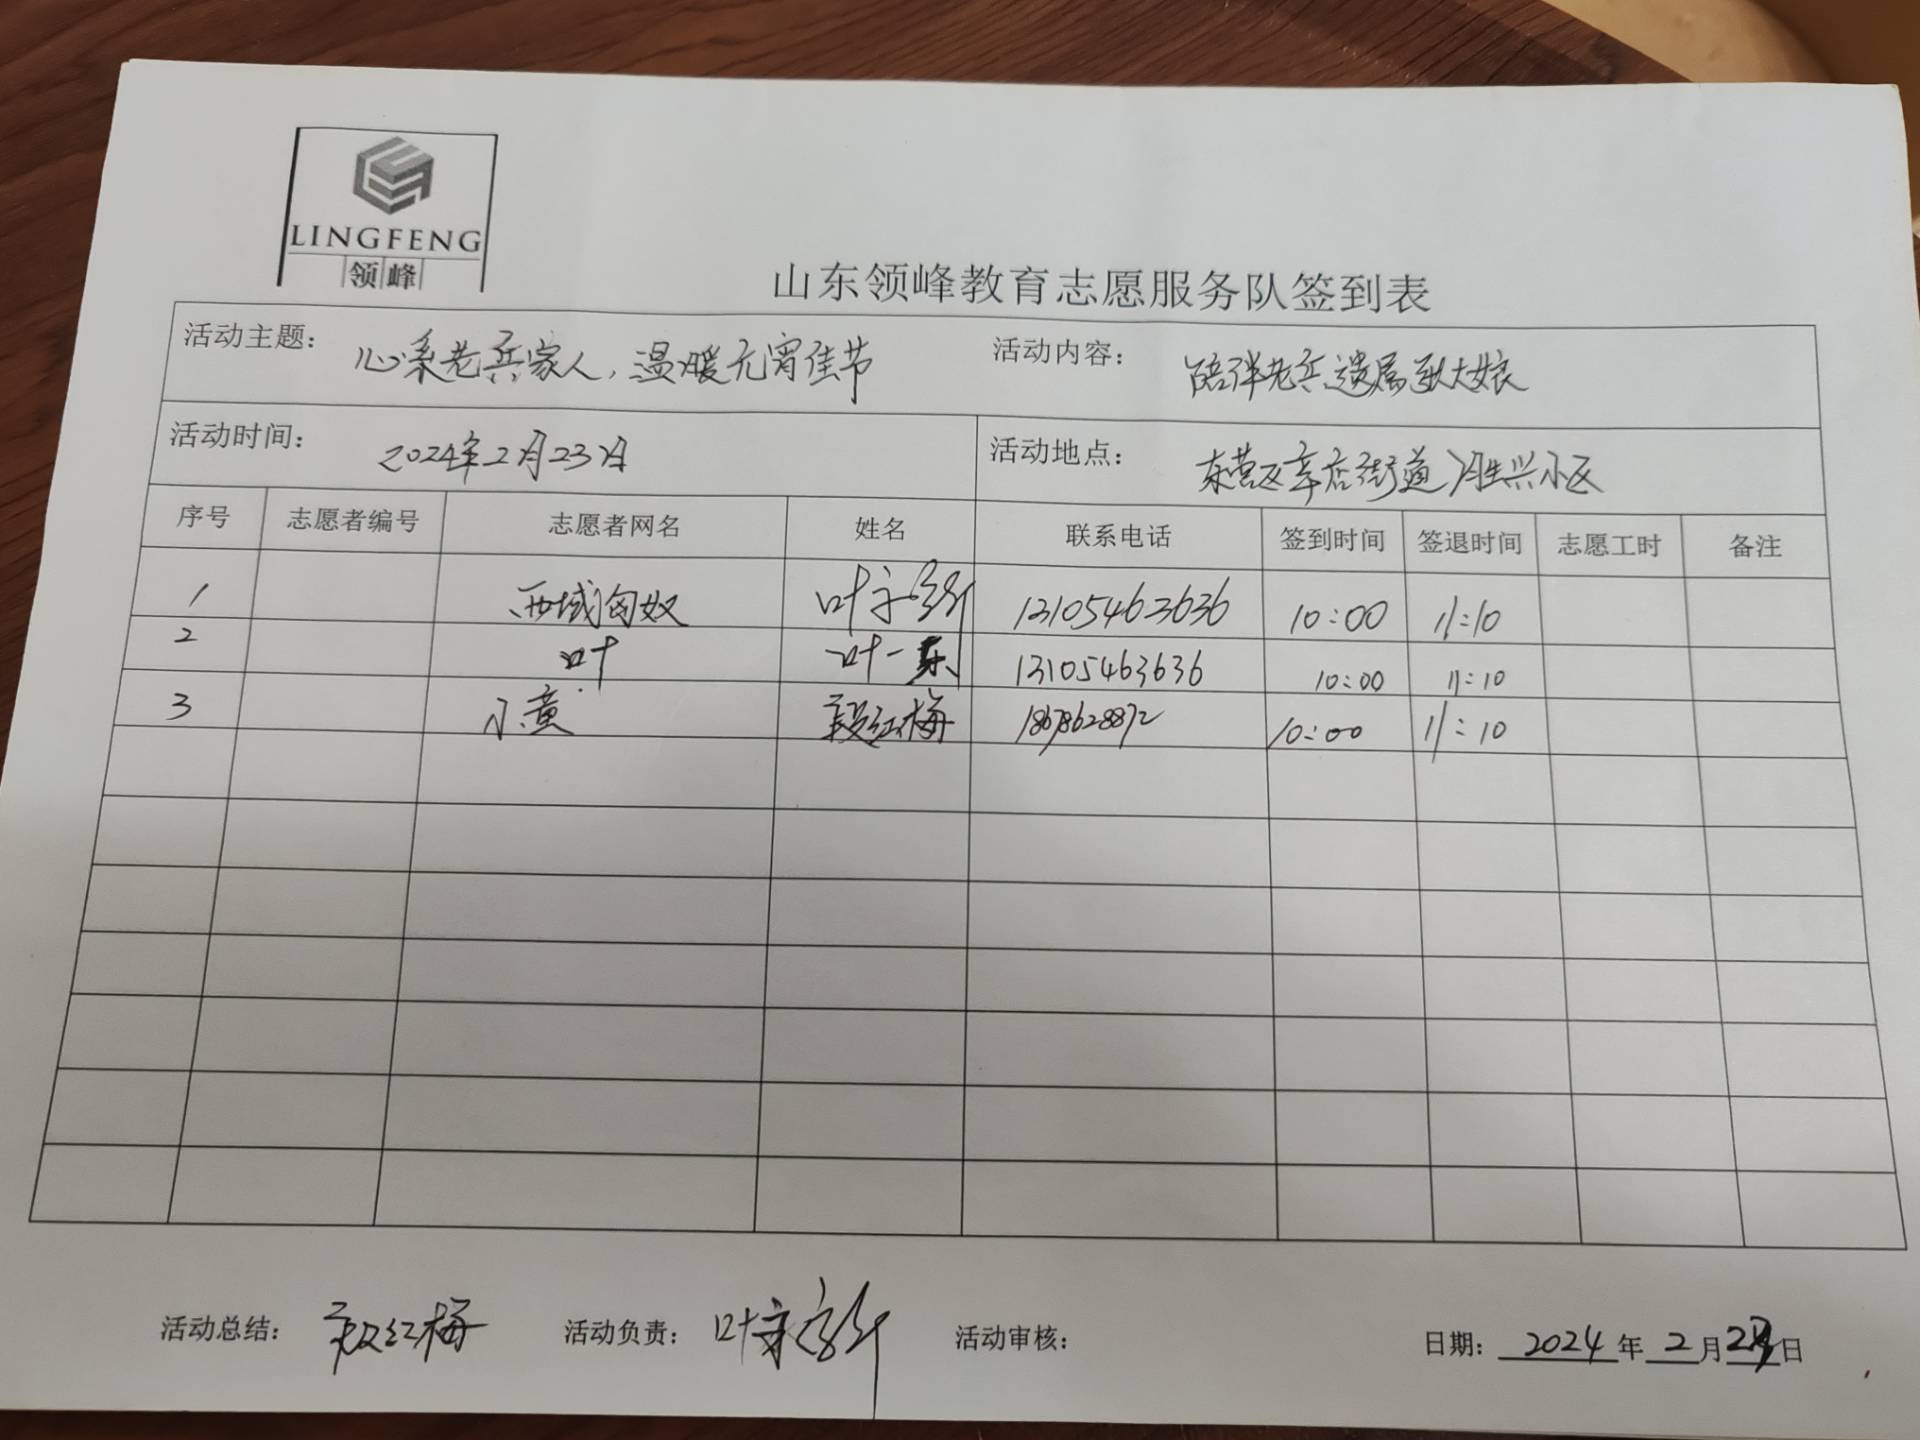 LINGFENG
领峰
山东领峰教育志愿服务队签到表
活动主题： 心系老兵家人，温暖元宵佳节 活动内容： 陪伴老兵遗属耿大娘
活动时间： 2024年2月23日 活动地点： 东营区辛店街道胜兴小区
序号 志愿者编号 志愿者网名 姓名 联系电话 签到时间 签退时间 志愿工时 备注
1 西域匈奴 叶 13105463636 10:00 11:10
2 叶 叶一东 13105463636 10:00 11:10
3 小黄 段红梅 18678628872 10:00 11:10
活动总结： 段红梅 活动负责： 叶 活动审核：
日期： 2024 年 2 月 23 日